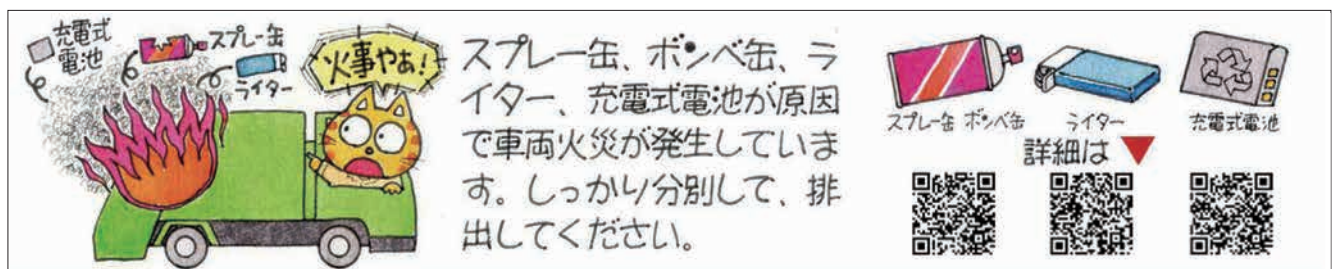 充電式
電池
スプレー缶
ライター
火事やぁ!
スプレー缶、ボンベ缶、ラ
イター、充電式電池が原因
で車両火災が発生していま
す。しっかり分別して、排
出してください。
スプレー缶 ボンベ缶
ライター
充電式電池
詳細は▼